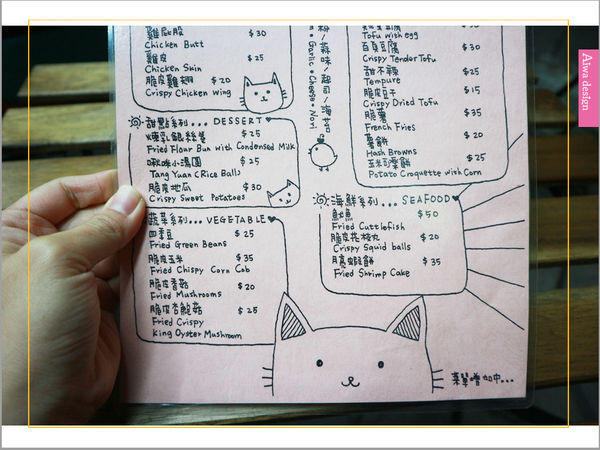 雞屁股
$30
Chicken Butt
雞皮
$25
Chicken Skin
脆皮雞翅 $20
Crispy Chicken Wing
甜點系列... DESSERT
煉乳銀絲卷
$25
Fried Flour Bun with Condensed Milk
啾咪小湯圓 $25
Tang Yuan (Rice Balls
脆皮地瓜 $30
Crispy Sweet Potatoes
蔬菜系列... VEGETABLE
四季豆 $25
Fried Green Beans
脆皮玉米 $35
Fried Chispy Corn Cab
脆皮香菇 $20
Fried Mushrooms
脆皮杏鮑菇 $25
Fried Crispy
King Oyster Mushroom
蒜味/起司/海苔
Garlic Cheese Nori
Tofu with egg
百頁豆腐 $30
Crispy Tender Tofu
甜不辣 $25
Tempure
脆皮豆干 $15
Crispy Dried Tofu
脆薯 $35
French Fries
薯餅 $20
Hash Browns
玉米可樂餅 $25
Potato Croquette with Corn
海鮮系列... SEAFOOD
魷魚 $50
Fried Cuttlefish
脆皮花枝丸 $20
Crispy Squid balls
月亮蝦餅 $35
Fried Shrimp Cake
菜單增加中...
Aiwa design